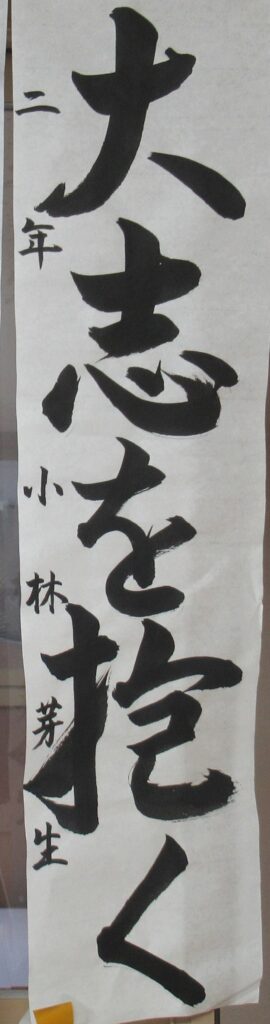 大志を抱く
二年 小林芽生